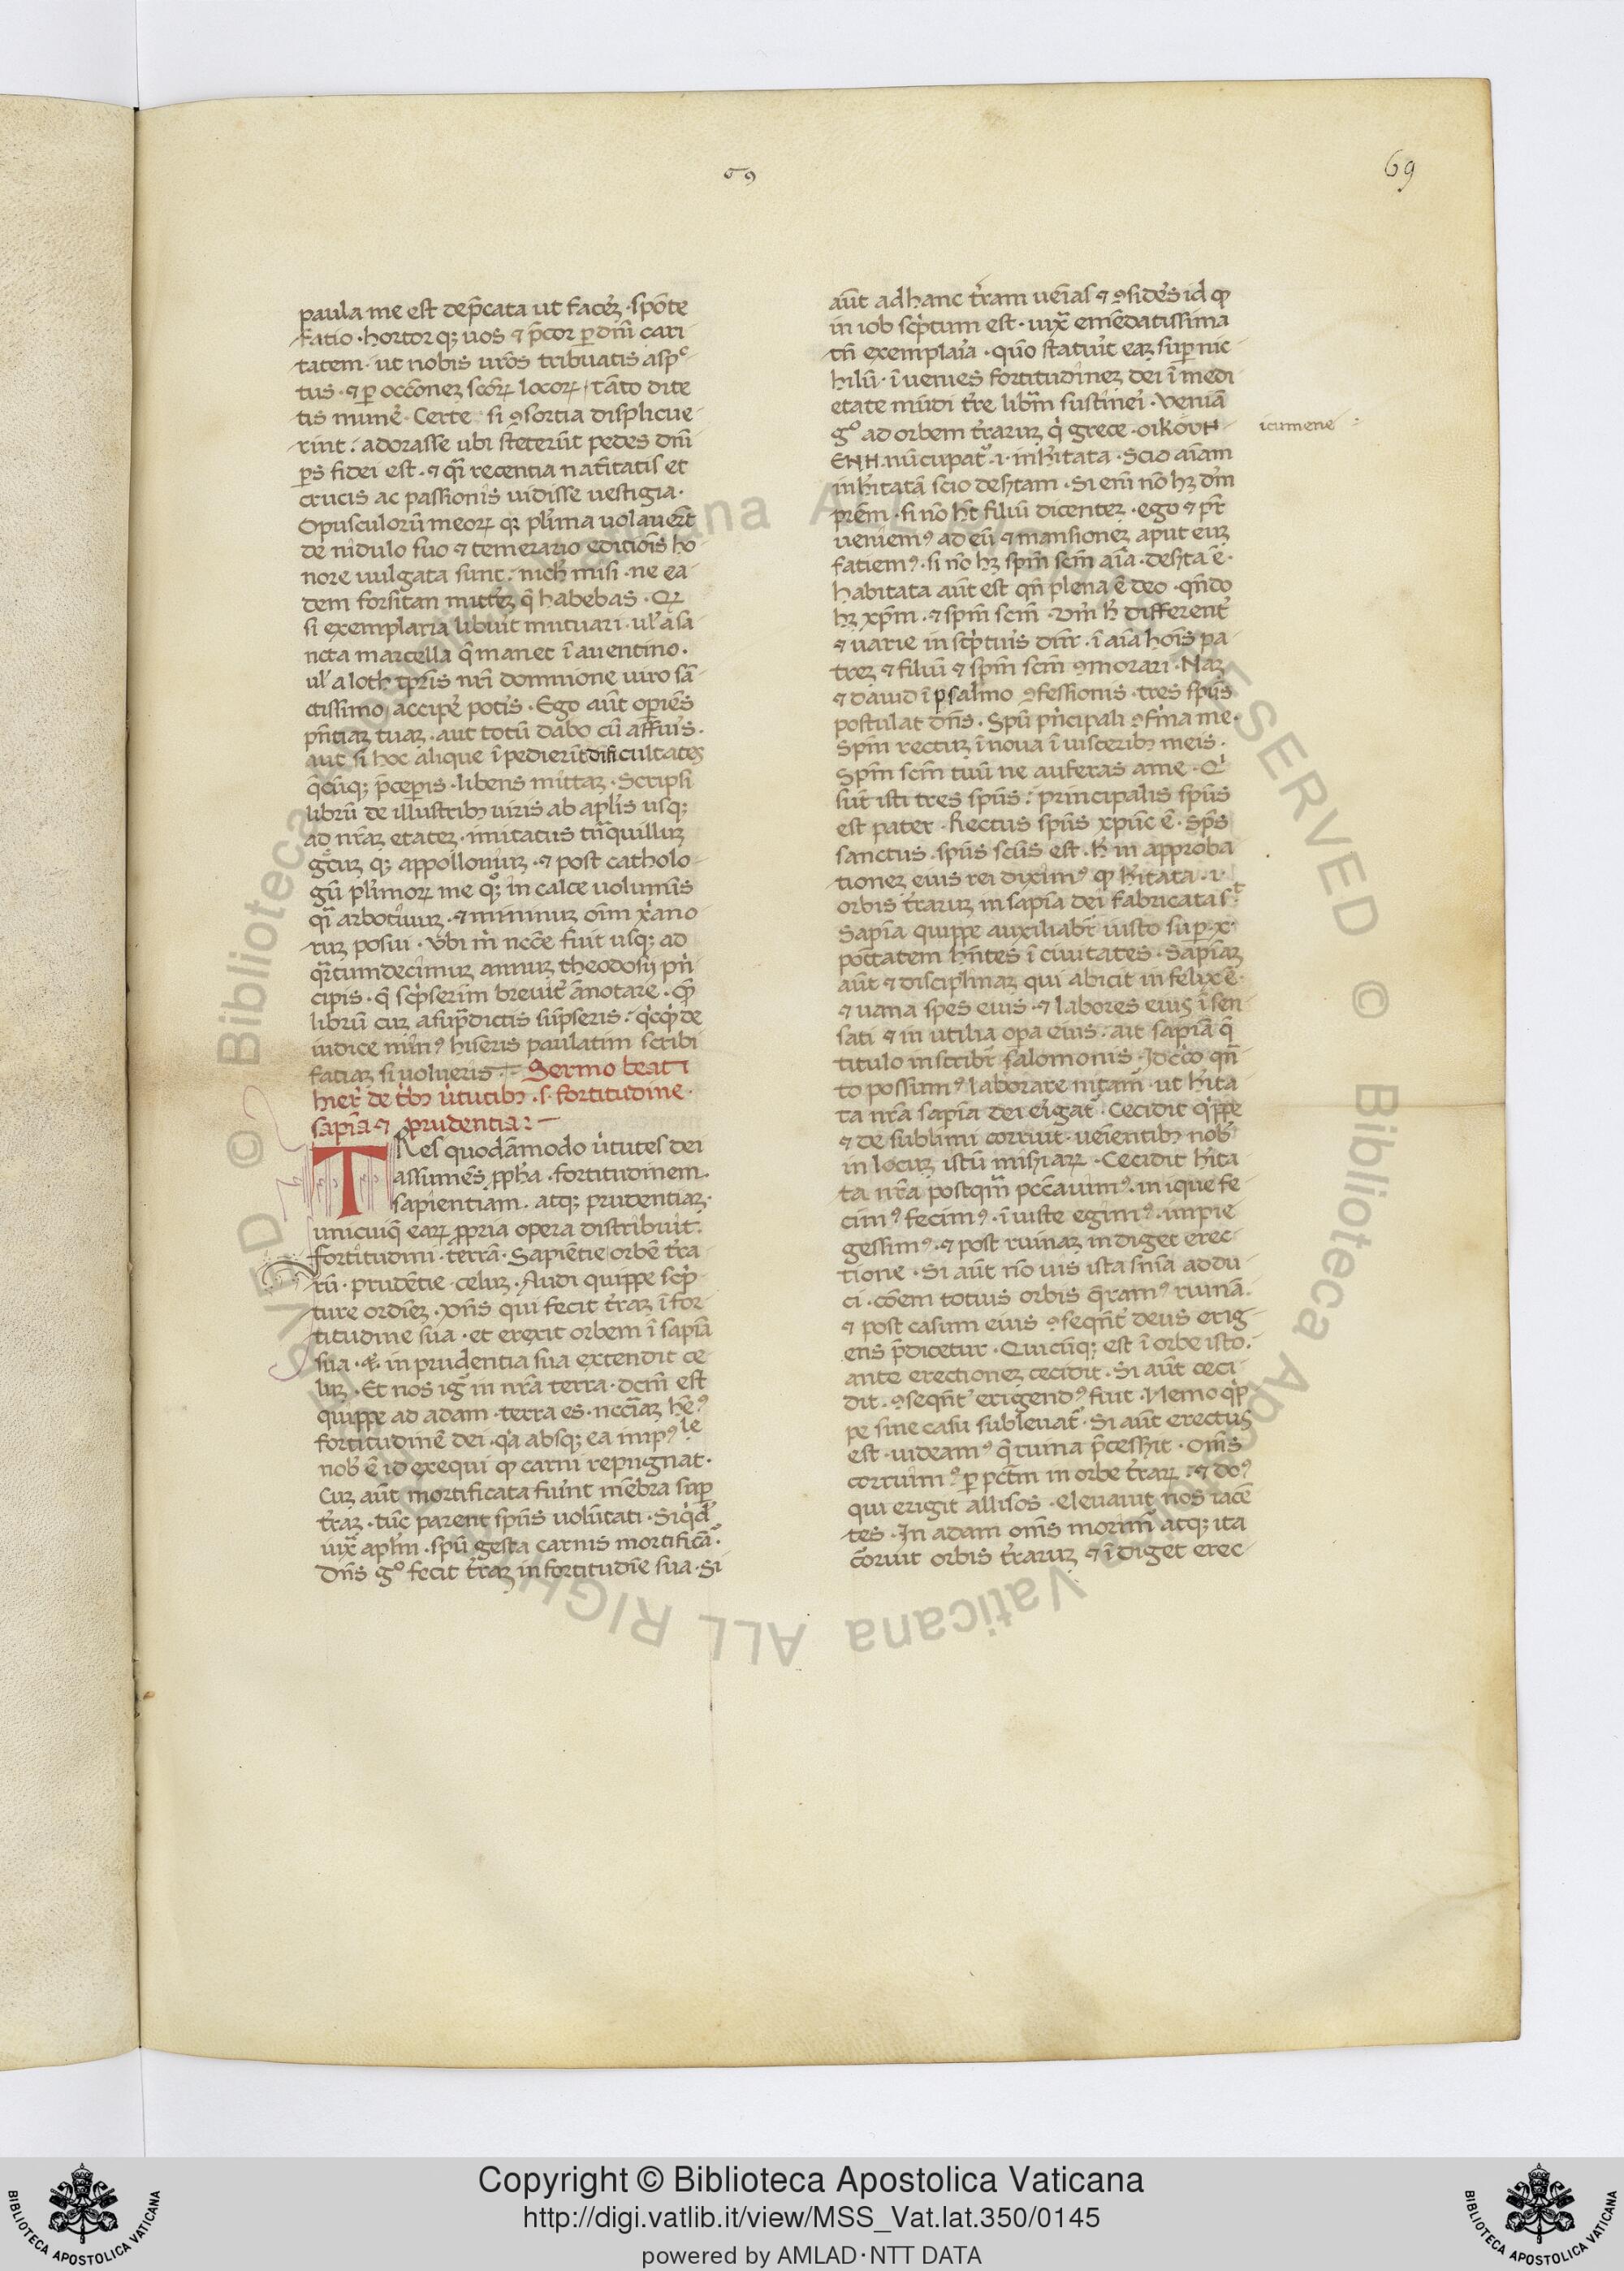 69
69
paula me est dep̄cata ut facerꝫ · spōte
fatio · hortor qꝫ uos ⁊ p̄cor ꝑ dn̄i cari
tatem · ut nobis ur̄os tribuatis asp
tus · ⁊ ꝑ occōnēꝫ scōꝝ locoꝝ · tāto dite
tis mune᷒ · Certe si ꝯsortia displicue
rint · adorasse ubi steterūt pedes dn̄i
ꝑs fidei est · ⁊ q̄i recentia natiuitatis et
crucis ac passionis uidisse uestigia ·
Opusculorū meoꝝ qꝫ pl᷒ima uolauer̄t
de nidulo suo ⁊ temerario editiōis ho
nore uulgata sunt · nich̄ misi · ne ea
dem forsitan mitterꝫ q̄ habebas · Qꝝ
si exemplaria libuit mutuari · ul᷒ a sa
ncta marcella q̄ manet ī auentino ·
ul᷒ a loth tp̄ris nr̄i domnione uiro sā
ctissimo accipe᷒ potis · Ego aūt opiēs
pn̄tiaꝫ tuaꝫ · aut totū dabo cū affuis ·
aut si hoc alique ī pedierīt difficultates
q̄cūqꝫ p̄ceperis · libens mittaꝫ · Scripsi
librū de illustribꝫ uiris ab apl̄is usqꝫ
ad nr̄aꝫ etateꝫ · imitatus tn̄quilluꝫ
gr̄cuꝫ qꝫ appolloniuꝫ · ⁊ post catholo
gū pl᷒imoꝝ me qꝫ in calce uolumīs
q̄i arbortiuuꝫ · ⁊ minimuꝫ oīm xp̄iano
ruꝫ posui · Vbi m̄ ncc̄e fuit usqꝫ ad
q̄rtumdecimuꝫ annuꝫ theodosij pn̄
cipis · q̄ scp̄serim breuit᷒ ānotare · Qn̄
librū cuꝫ a sup̄dictis sūpseris · q᷒cq᷒ de
iudice min᷒ hiseris paulatim scribi
fatiaꝫ si uolueris · Sermo beati
hier᷒ de t᷒bꝫ u᷒tutibꝫ · s · fortitudine ·
sapīa ⁊ prudentia :
TRes quodāmodo u᷒tutes dei
assumēs ꝓpha · fortitudinem ·
sapientiam · atqꝫ prudentiaꝫ ·
unicuiq̄ eaꝝ ꝓpria opera distribuit ·
fortitudini · terrā · Sapiētie orbē t᷒ra
rū · prudētie · celuꝫ · Audi quippe scp̄
ture ordinēꝫ · Dn̄s qui fecit t᷒raꝫ ī for
titudine sua · et erexit orbem ī sapīa
sua · ⁊ · in prudentia sua extendit ce
luꝫ · Et nos ig᷒ in nr̄a terra · dcm̄ est
quippe ad adam · terra es · nccīaꝫ hēm᷒
fortitudinē dei · q᷒a absqꝫ ea imp᷒le
nob᷒ ē id exequi qd̄ carni repugnat ·
Cuꝫ aūt mortificata fuint mēbra suꝑ
t᷒raꝫ · tūc parent spūs uolūtati · Siq᷒d᷒
uix᷒ apl̄m · spū gesta carnis mortificā ·
Dn̄s g᷒ fecit t᷒raꝫ in fortitudīe sua · Si
aūt ad hanc t᷒ram uēias ⁊ ꝯsides id qd̄
in iob scp̄tum est · uix᷒ emēdatissima
tn̄ exemplaīa · quō statuit eaꝫ suꝑ nic
hilū · ī uenies fortitudineꝫ dei ī medi
etate mūdi t᷒re librm̄ sustinei · Veniā
g᷒ ad orbem t᷒raruꝫ q᷒ grece · oikoyʜ
ENH nūcupat᷒ · i · inh̄itata · Scio aīam
inh̄itatā scio deṡtam · Si enī nō hꝫ dm̄
prēm · si nō ht̄ filiū dicenteꝫ · ego ⁊ pr̄
ueniem᷒ ad eū ⁊ mansioneꝫ aput euꝫ
fatiem᷒ · si nō hꝫ spm̄ scm̄ aīa · deṡta ē ·
habitata aūt est qn̄ plena ē deo · qn̄do
hꝫ xp̄m · ⁊ spm̄ scm̄ · Vn̄ h᷒ different᷒
⁊ uarie in scp̄tuis dr̄ · ī aīa hoīs pa
treꝫ ⁊ filiū ⁊ spm̄ scm̄ ꝯmorari · Naꝫ
⁊ dauid ī psalmo ꝯfessionis · tres spūs
postulat dn̄s · Spū pn̄cipali ꝯfirma me ·
Spm̄ rectuꝫ īnoua ī uisceribꝫ meis ·
Spm̄ scm̄ tuū ne auferas a me · Q᷒
sūt isti tres spūs · principalis spūs
est pater · Rectus spūs xpūc ē · Sp̄s
sanctus · spūs scūs est · h̄ in approba
tioneꝫ eius rei diximꝰ qd̄ h̄itata · i ·
orbis t᷒raruꝫ in sapīa dei fabricata s᷒t
Sapīa quippe auxiliabr̄ iusto suꝑ · x ·
potātem hn̄tes ī ciuitates · Sapīaꝫ
aūt ⁊ disciplinaꝫ qui abicit infelix ē ·
⁊ uana spes eius · ⁊ labores eius īsen
sati ⁊ in utilia oꝑa eius · ait sapīa q̄
titulo inscribr̄ salomonis · Idcc̄o qn̄
to possumꝰ laborare nitam᷒ · ut h̄ita
ta nr̄a sapīa dei e᷒igat᷒ · Cecidit q᷒ppe
⁊ de sublimi corruit · uēientibꝫ nob᷒
in locuꝫ istū misṡiaꝝ · Cecidit h̄ita
ta nr̄a postqm̄ pccauimꝰ · inique fe
cimꝰ fecimꝰ · ī iuste egimꝰ · impie
gessimꝰ · ⁊ post ruinaꝫ indiget erec
tione · Si aūt nō uis ista sn̄ia addu
ci · cōem totius orbis q̄ramꝰ ruinā ·
⁊ post casum eius ꝯseqn̄t᷒ deus erig
ens p̄dicetur · Quicūqꝫ est ī orbe isto ·
ante erectioneꝫ cecidit · Si aūt ceci
dit · ꝯseqn̄t᷒ erigendꝰ fuit · Nemo q᷒p
pe sine casu subleuat᷒ · Si aūt erectus
est · uideamꝰ q̄ ruina p̄cesṡit · om̄s
corruimꝰ ꝑ pctm̄ in orbe t᷒raꝝ · ⁊ dōꝰ
qui erigit allisos · eleuauit nos iacē
tes · In adam om̄s morimr̄ atqꝫ ita
cōruit orbis t᷒raruꝫ ⁊ ī diget erec
icumene
Copyright © Biblioteca Apostolica Vaticana
http://digi.vatlib.it/view/MSS_Vat.lat.350/0145
powered by AMLAD·NTT DATA
BIBLIOTECA APOSTOLICA VATICANA
BIBLIOTECA APOSTOLICA VATICANA
© Biblioteca Apostolica Vaticana ALL RIGHTS RESERVED